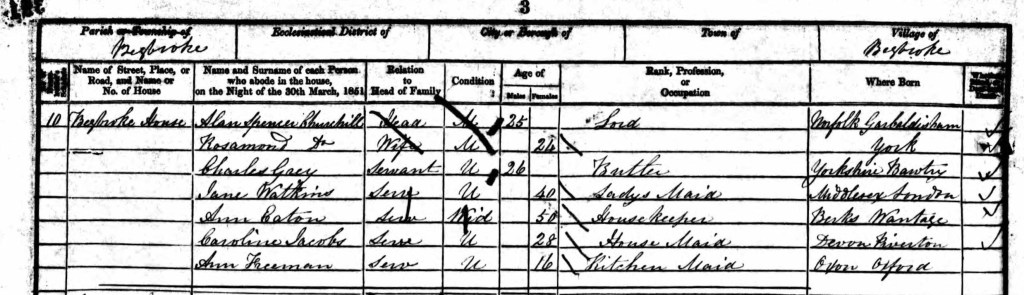 3
Parish or Township of Ecclesiastical District of City or Borough of Town of Village of
Begbroke Begbroke
Name of Street, Place, or Road, and Name or No. of House Name and Surname of each Person who abode in the house, on the Night of the 30th March, 1851 Relation to Head of Family Condition Age of Males Females Rank, Profession, or Occupation Where Born
10 Begbroke House Alan Spencer Churchill Head M 25 Lord Norfolk Garbaldisham
Rosamond Do Wife M 24 York
Charles Grey Servant U 26 Butler Yorkshire Bawtry
Jane Watkins Serv U 40 Ladys Maid Middlesex London
Ann Eaton Serv Wid 50 Housekeeper Berks Wantage
Caroline Jacobs Serv U 28 House Maid Devon Tiverton
Ann Freeman Serv U 16 Kitchen Maid Oxon Oxford